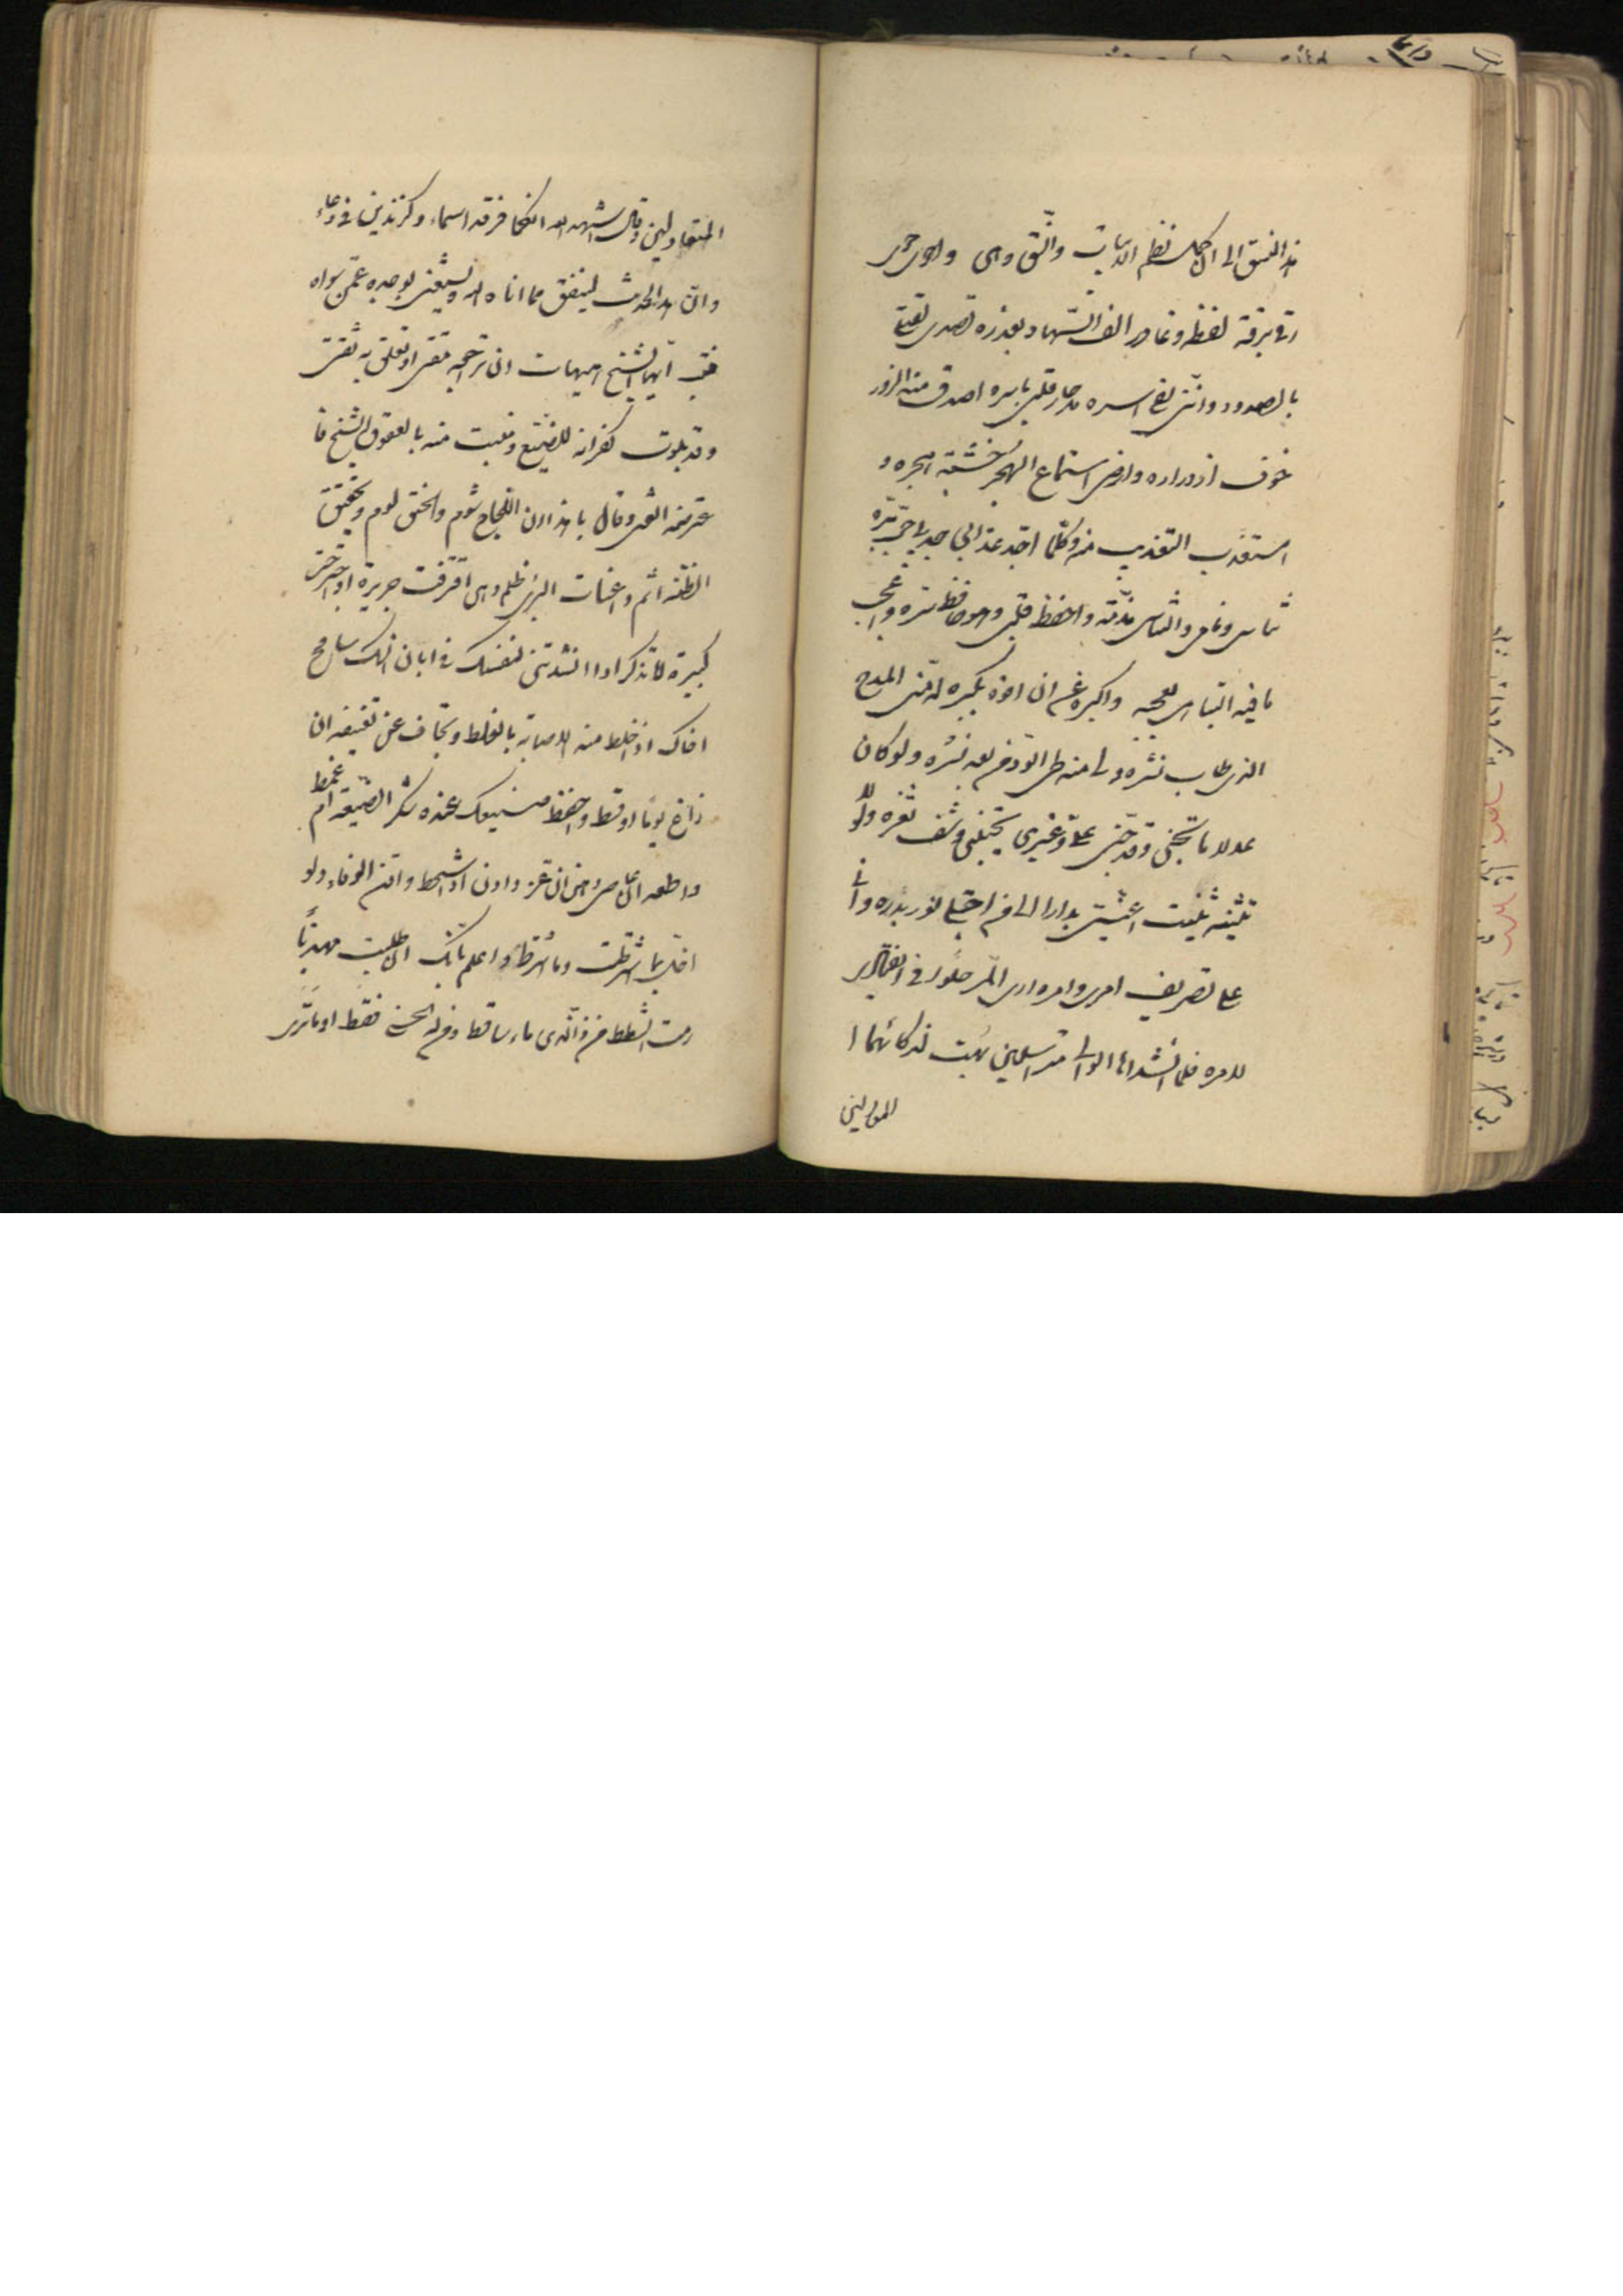 هذا النسق الى ان كمل نظم الابيات واتّسق وهى واحوى حوى
رقى برقة لفظه وغادر الف السّهاد بغدره تصدى لقتلى
بالصدود وانّنى لفى اسره مذ حاز قلبى باسره اصدق منه الزور
خوف ازوراره وارضى استماع الهجر خشية هجره و
استعذب التعذيب منه وكلّما اجدّ عذابى جدبى حبّ برّه
تناسى ذمامى والتناسى مذمّة واحفظ قلبى وهو حافظ سرّه واعجب
ما فيه التباهى بعجبه واكبره عن ان افوه بكبره له منّى المدح
الذى طاب نشره ولى منه طى الودّ من بعد نشره ولو كان
عدلا ما تجنّى وقد جنى علىّ وغيرى يجتنى رشف ثغره ولولا
تثنّيه ثنيت اعنّتى بدارا الى من اجتلى نور بدره وانّى
على تصريف امرى وامره ارى المرّ حلوا فى انقيادى
لامره فلما انشداها الوالى متراسلين بهت لذكائهما ا
المتعادلين
المتعادلين وقال اشهد الله انكما فرقدا سماء وكزندين فى وعاء
وانّ هذا الحدث لينفق مما اتاه الله ويستغنى بوجده عمّن سواه
فتب ايّها الشيخ هيهات ان تراجعه مقتى او تعلق به ثقتى
وقد بلوت كفرانه للصنيع ومنيت منه بالعقوق الشنيع فا
عترضه الفتى وقال يا هذا ان اللّجاج شوم والحنق لوم وتحقيق
الظنّة اثم واعنات البرئ ظلم وهبنى اقترفت جريرة او اجترحت
كبيرة اما تذكر اذا انشدتنى لنفسك فى ابان انسك سامح
اخاك اذا خلط منه الاصابة بالغلط وتجاف عن تعنيفه ان
زاغ يوما او قسط واحفظ صنيعك عنده شكر الصّنيعة ام غمط
واطعه ان عاصى وهن ان عزّ وادن اذا شحط واقن الوفاء ولو
اخلّ بما اشترطت وما اشترط واعلم بانّك ان طلبت مهذبًا
رمت الشطط من ذا الّذى ما ساء قط ومن له الحسنى فقط او ما ترى